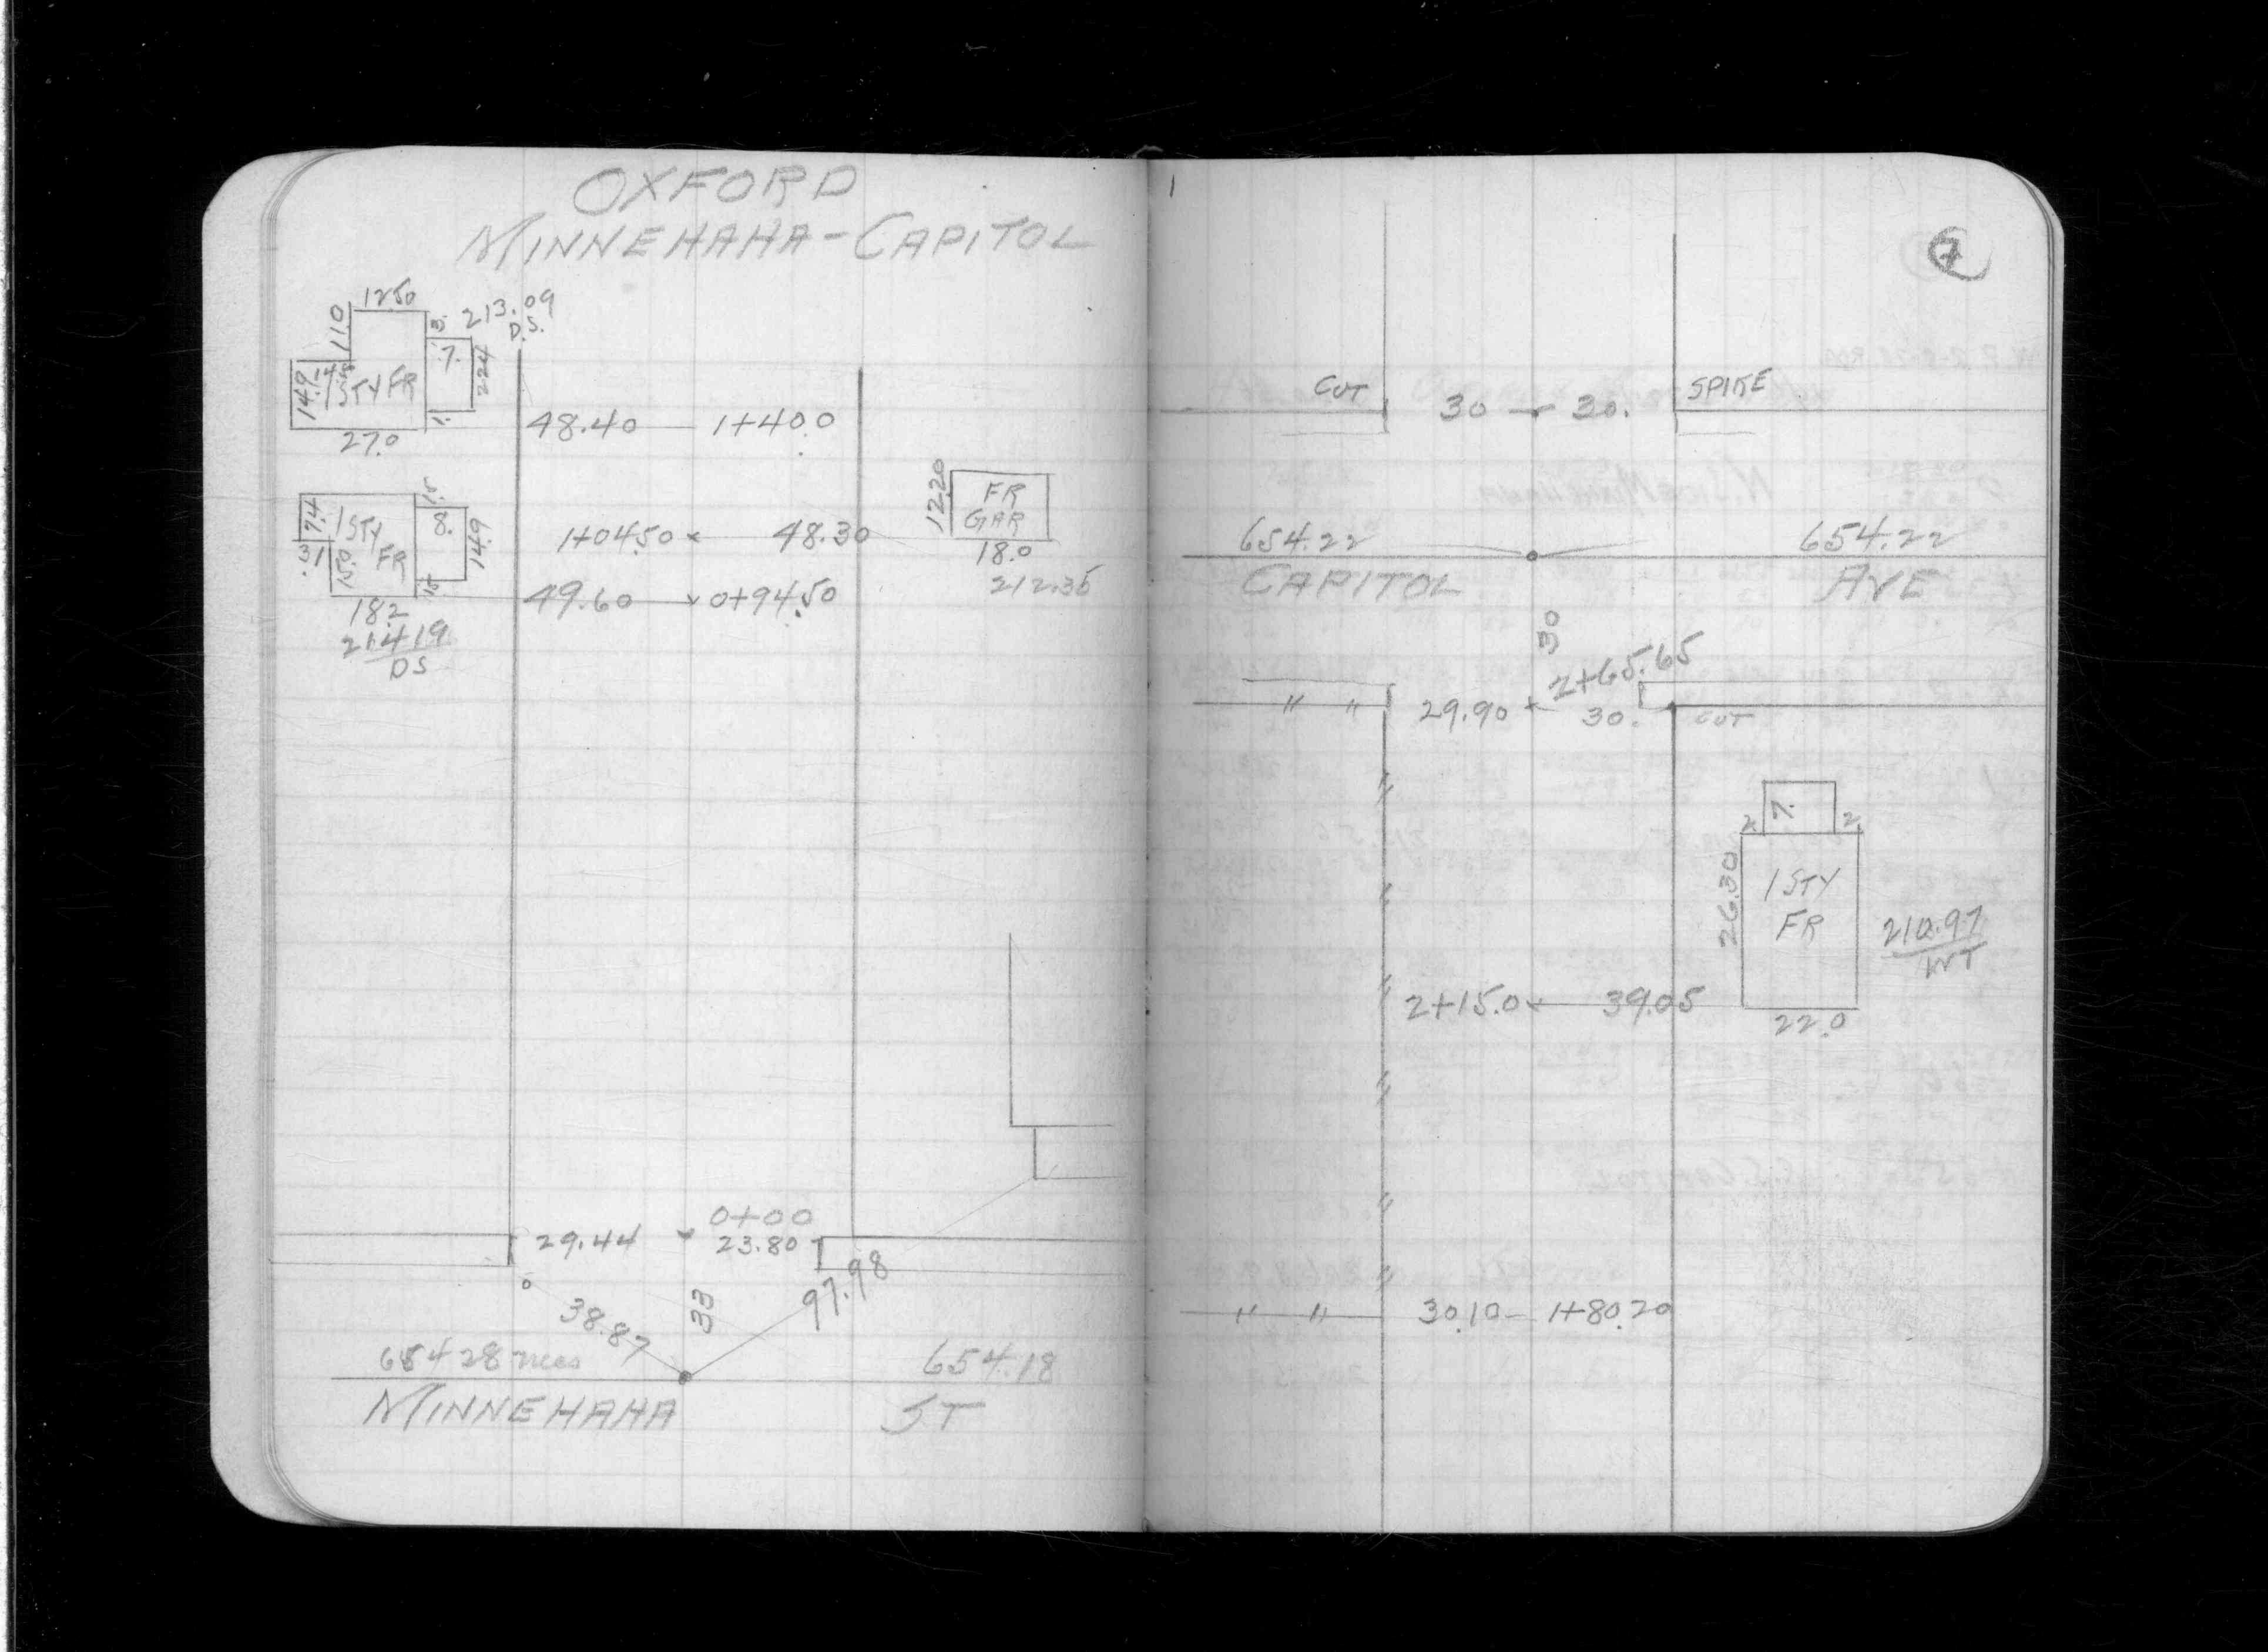 OXFORD
MINNEHAHA-CAPITOL
12.50
213.09
D.S.
11.0
3.
7.
22.4
14.9
1 STY FR
1.
27.0
48.40 1+40.0
7.4
1 STY
FR
8.
14.9
3.1
15.0
18.2
214.19
DS
1+04.50 48.30
49.60 0+94.50
12.20
FR
GAR
18.0
212.35
0+00
29.44 23.80
38.87
33
97.98
654.28 mees
654.18
MINNEHAHA ST
7
CUT 30 30. SPIKE
654.22 654.22
CAPITOL AVE
30
2+65.65
" " 29.90 30. CUT
7.
2 2
26.30
1 STY
FR
210.97
WT
2+15.0 39.05
22.0
" " 30.10 1+80.20